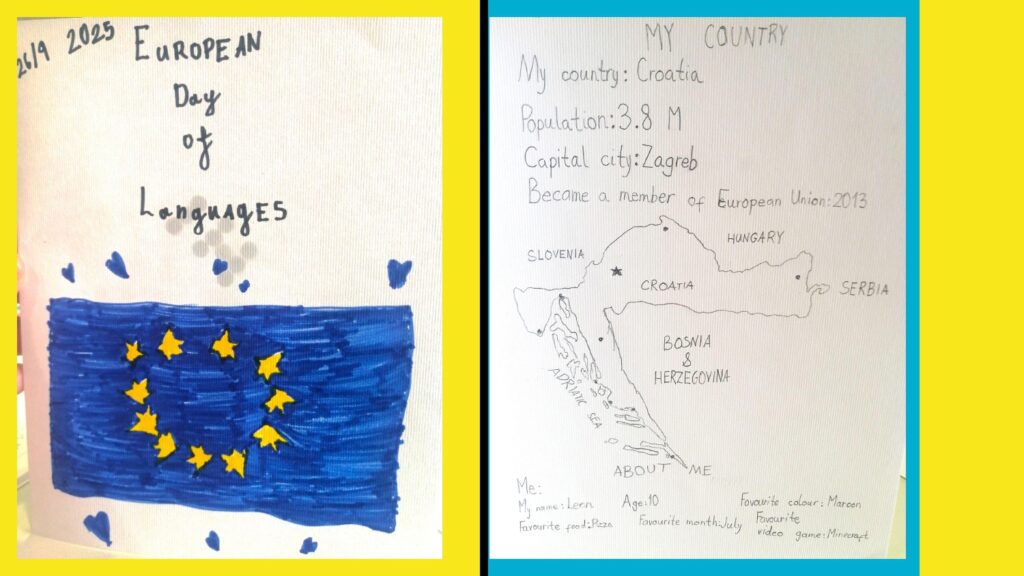 26/9 2025
EUROPEAN
Day
of
LanguagES
MY COUNTRY
My country: Croatia
Population: 3.8 M
Capital city: Zagreb
Became a member of European Union: 2013
SLOVENIA
HUNGARY
CROATIA
SERBIA
BOSNIA
&
HERZEGOVINA
ADRIATIC SEA
ABOUT ME
Me:
My name: Leon Age: 10 Favourite colour: Maroon
Favourite food: Pizza Favourite month: July Favourite
video game: Minecraft